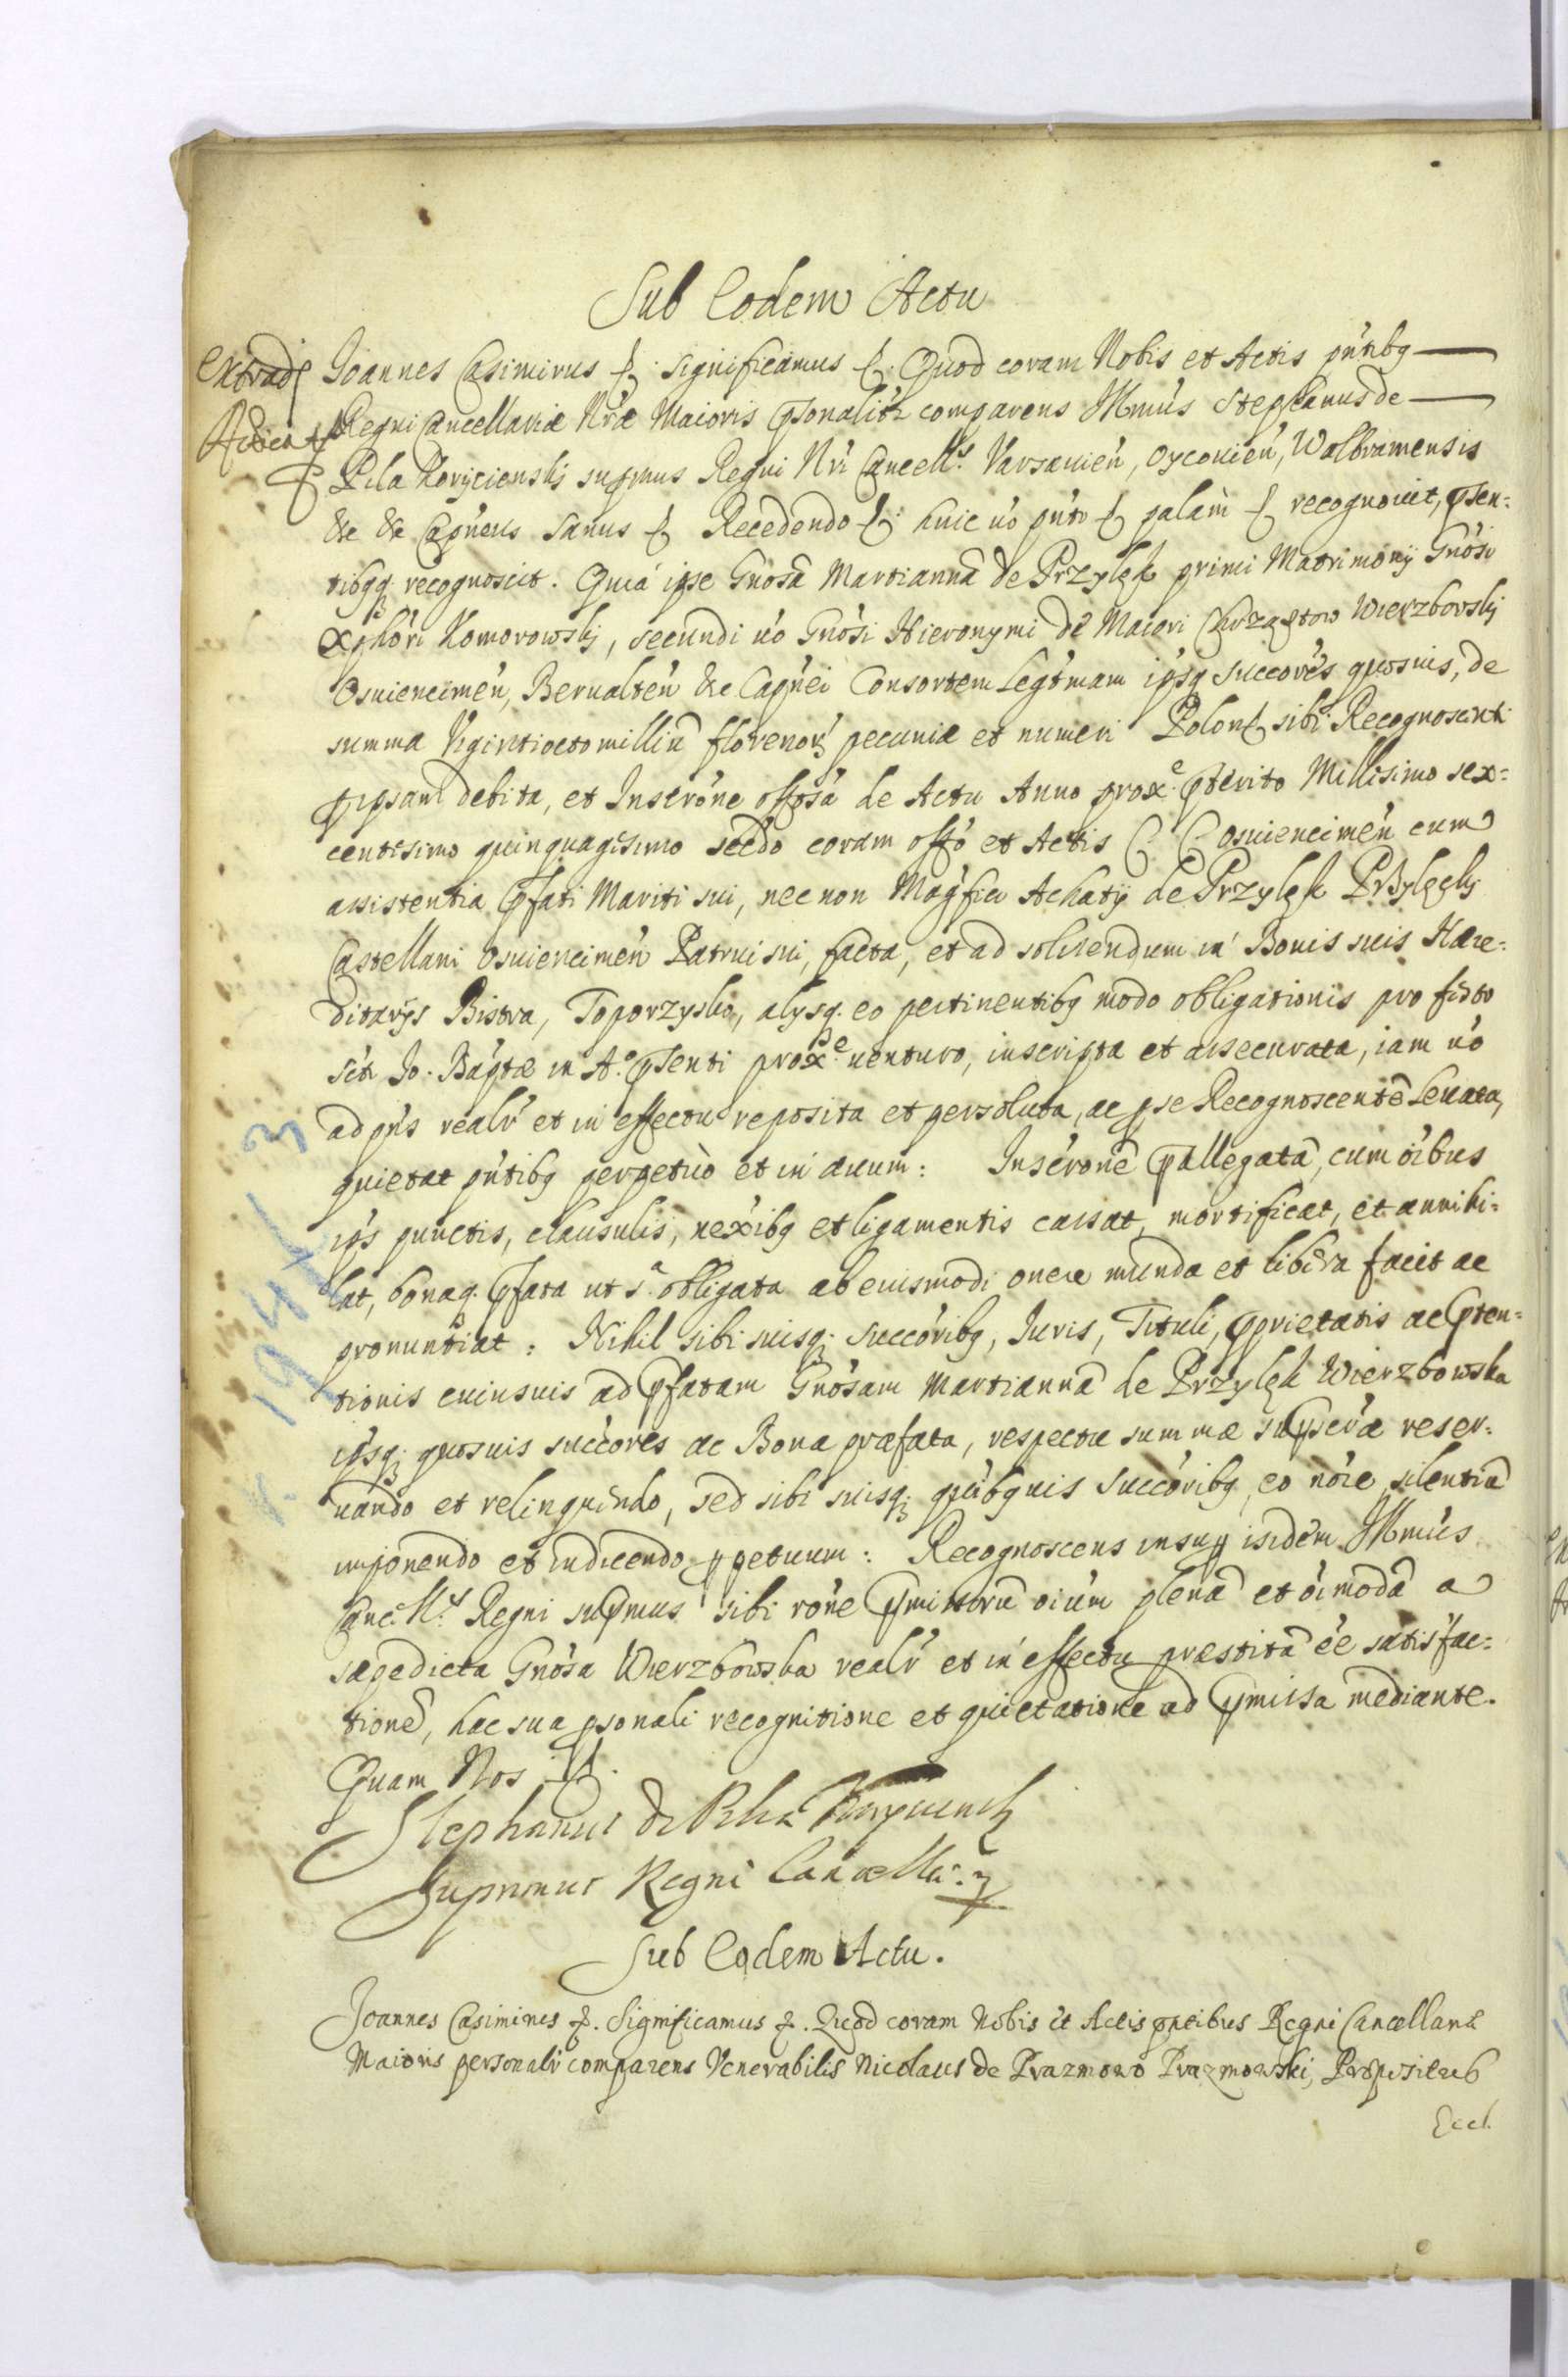 Sub Eodem Actu
Extrad
Joannes Casimirus &. significamus &. Quod coram Nobis et Actis pntibg
Regni Cancellariæ Nræ Maioris psonaliter comparens Illmus Stephanus de
Pila Koryciensky supmus Regni Nri Cancell.s Varsauien, Oyconien, Wolbramensis
&c &c Capneus sanus &. Recedendo &. huic uo pnto &. palam &. recognouit, psen-
tibgq recognoscit. Quia ipse Gnosa Martianna de Przylęk primi Matrimonij Gnosi
Xphori Komorowskj, secundi uo Gnosi Hieronymi de Maiori Chrząstow Wierzbovskj
Osuiencimen, Berualten &c Capnei Consortem Legtmam ipsq succores quosuis, de
summa Vigintiocto milliu florenor pecuniæ et numeri Polon &. sibi Recognoscenti
p ipsam debita, et Inscrone offosa de Actu Anno prox.e pterito Millesimo sex-
centesimo quinquagesimo secdo coram offo et Actis C. C. Osuiencimen cum
assistentia pfati Mariti sui, nec non Magfici Achatij de Przylęk Przylęckj
Castellani Osuiencimen Patrui sui, facta, et ad soluendum in Bonis suis Hære-
ditarijs Bistra, Toporzysko, alysq. eo pertinentibg modo obligationis pro festo
scti Jo. Baptæ in A.o psenti prox.e uenturo, inscripta et assecurata, iam uo
ad pns realr et in effectu reposita et persoluta, ac p se Recognoscente Leuata,
quietat pntibg perpetuo et in æuum: Inscrone pallegata, cum oibus
ips punctis, clausulis, nexibg et ligamentis cassat, mortificat, et annihi-
lat, bonaq. pfata ut s.a obligata ab eiusmodi onere munda et libera facit ac
pronuntiat: Nihil sibi suisq. succoribg, Iuris, Tituli, pprietatis ac pten-
tionis cuiusuis ad pfatam Gnosam Martianna de Przylęk Wierzbowska
ipsq. quosuis succores ac Bona præfata, respectu summæ supscræ reser-
uando et relinquendo, sed sibi suisq. quibguis succoribg, eo noie silentiu
imponendo et indicendo ppetuum: Recognoscens insup isidem Illmus
Canc.ll.s Regni supmus sibi rone pmissoru oium plena et oimoda a
sæpedicta Gnosa Wierzbowska realr et in effectu præstita ee satisfac-
tione, hac sua psonali recognitione et quietatione ad pmissa mediante.
Quam Nos &.
Stephanus de Pilca Korycinsky
Supremus Regni Cancella.
Sub Eodem Actu.
Joannes Casimirus &. Significamus &. Quod coram Nobis et Actis pntibus Regni Cancellariæ
Maioris personalr comparens Venerabilis Nicolaus de Prazmowo Prazmowski, Præpositus
Eccl.